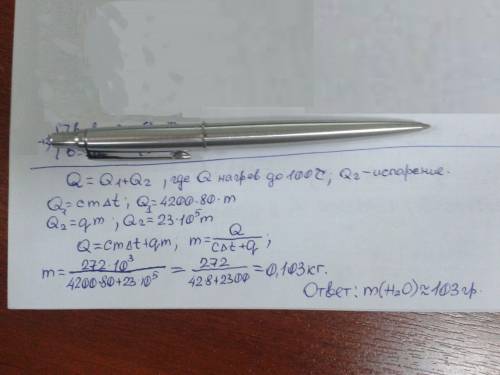 Q = Q1+Q2, где Q нагрев до 100°C, Q2-испарение.
Q1=cm∆t; Q1=4200·80·m
Q2=qm; Q2=23·10⁵m
Q=cm∆t+qm, m=Q/(c∆t+q);
m=272·10³/(4200·80+23·10⁵)=272/(42·8+2300)=0,103кг.
Ответ: m(H2O)≈103гр.